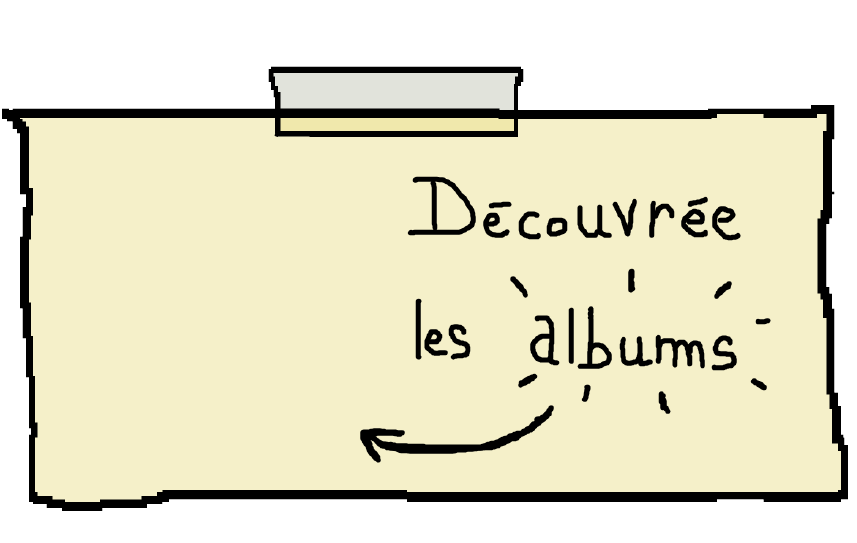 Découvrée
les albums